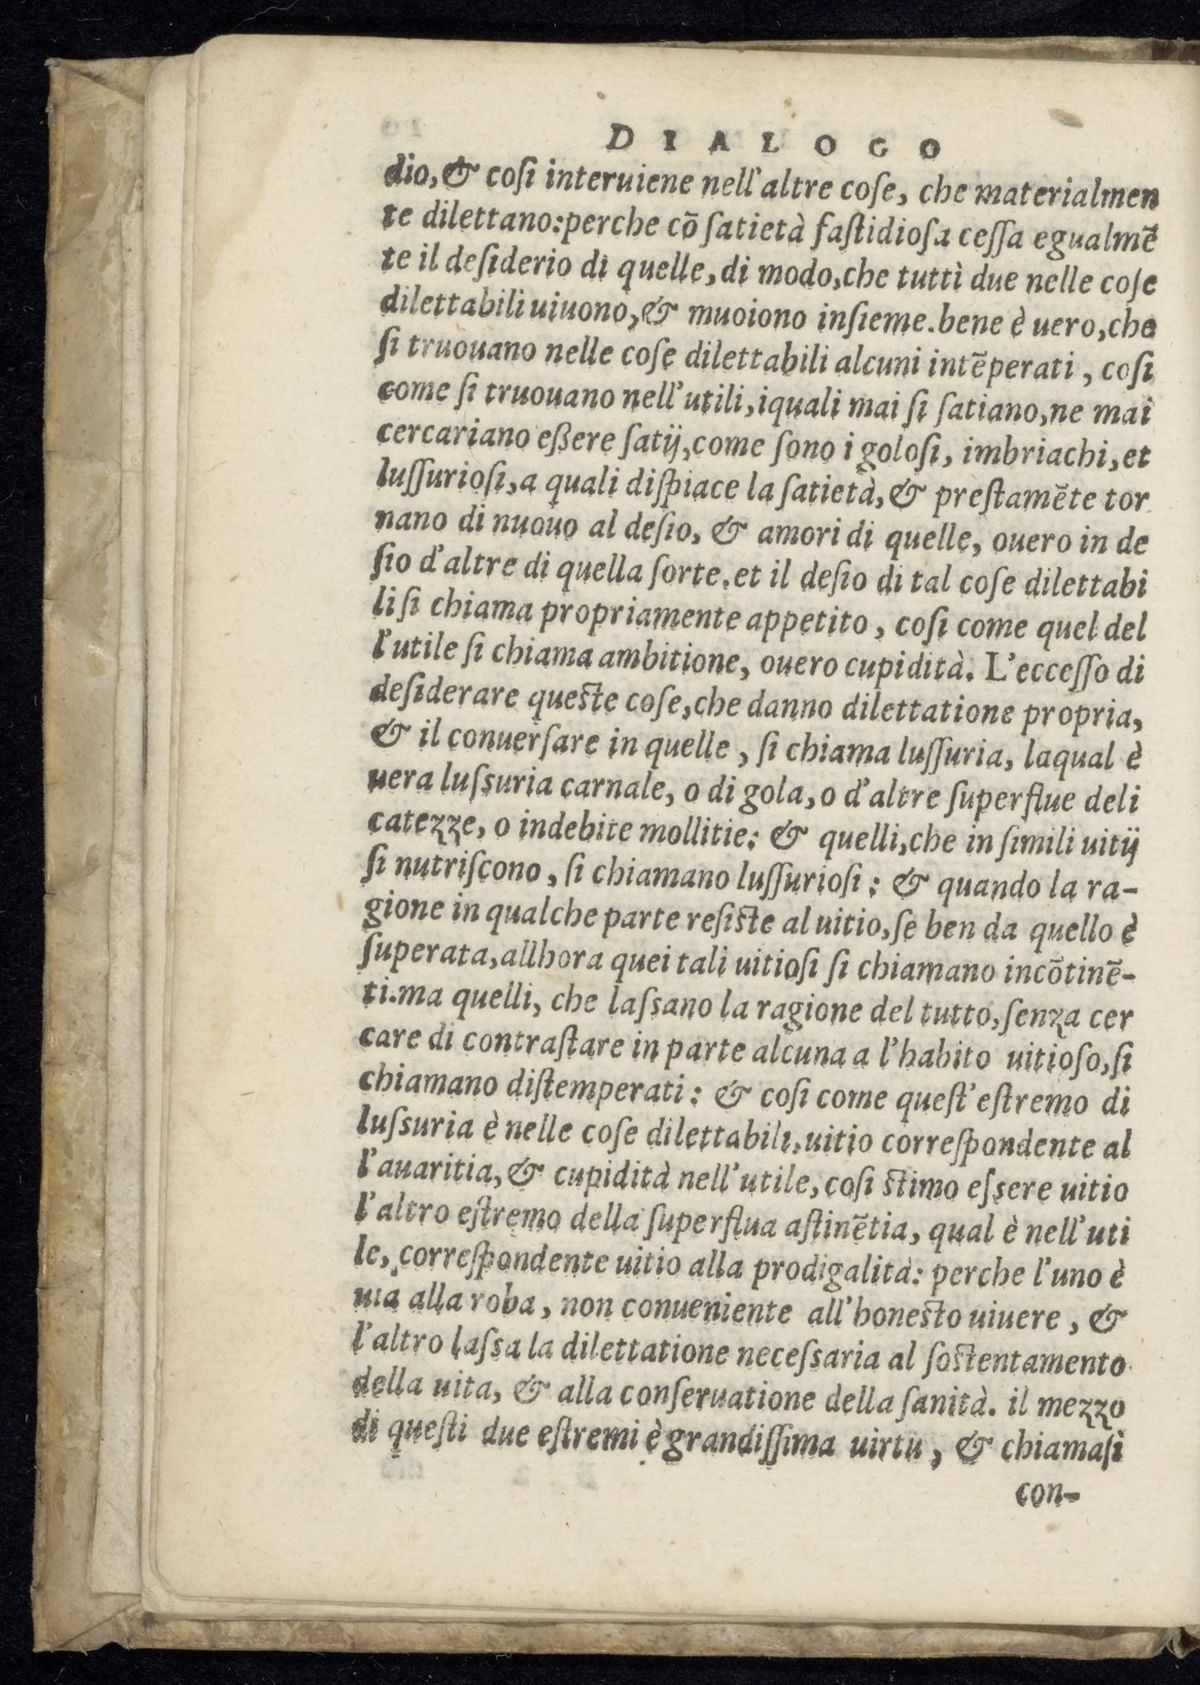 DIALOGO
dio, & coſi interuiene nell'altre coſe, che materialmen
te dilettano:perche cō ſatietà faſtidioſa ceſſa egualmē
te il deſiderio di quelle, di modo, che tutti due nelle coſe
dilettabili uiuono, & muoiono inſieme. bene è uero, che
ſi truouano nelle coſe dilettabili alcuni intēperati, coſi
come ſi truouano nell'utili, iquali mai ſi ſatiano, ne mai
cercariano eßere ſatij, come ſono i goloſi, imbriachi, et
luſſurioſi, a quali diſpiace la ſatietà, & preſtamēte tor
nano di nuouo al deſio, & amori di quelle, ouero in de
ſio d'altre di quella ſorte. et il deſio di tal coſe dilettabi
li ſi chiama propriamente appetito, coſi come quel del
l'utile ſi chiama ambitione, ouero cupidità. L'ecceſſo di
deſiderare queſte coſe, che danno dilettatione propria,
& il conuerſare in quelle, ſi chiama luſſuria, laqual è
uera luſsuria carnale, o di gola, o d'altre ſuperflue deli
catezze, o indebite mollitie: & quelli, che in ſimili uitij
ſi nutriſcono, ſi chiamano luſſurioſi: & quando la ra-
gione in qualche parte reſiſte al uitio, ſe ben da quello è
ſuperata, allhora quei tali uitioſi ſi chiamano incōtinē-
ti. ma quelli, che laſsano la ragione del tutto, ſenza cer
care di contraſtare in parte alcuna a l'habito uitioſo, ſi
chiamano diſtemperati: & coſi come queſt'eſtremo di
luſsuria è nelle coſe dilettabili, uitio correſpondente al
l'auaritia, & cupidità nell'utile, coſi ſtimo eſsere uitio
l'altro eſtremo della ſuperflua aſtinētia, qual è nell'uti
le, correſpondente uitio alla prodigalità: perche l'uno è
uia alla roba, non conueniente all'honeſto uiuere, &
l'altro laſsa la dilettatione neceſsaria al ſoſtentamento
della uita, & alla conſeruatione della ſanità. il mezzo
di queſti due eſtremi è grandiſſima uirtu, & chiamaſi
con-